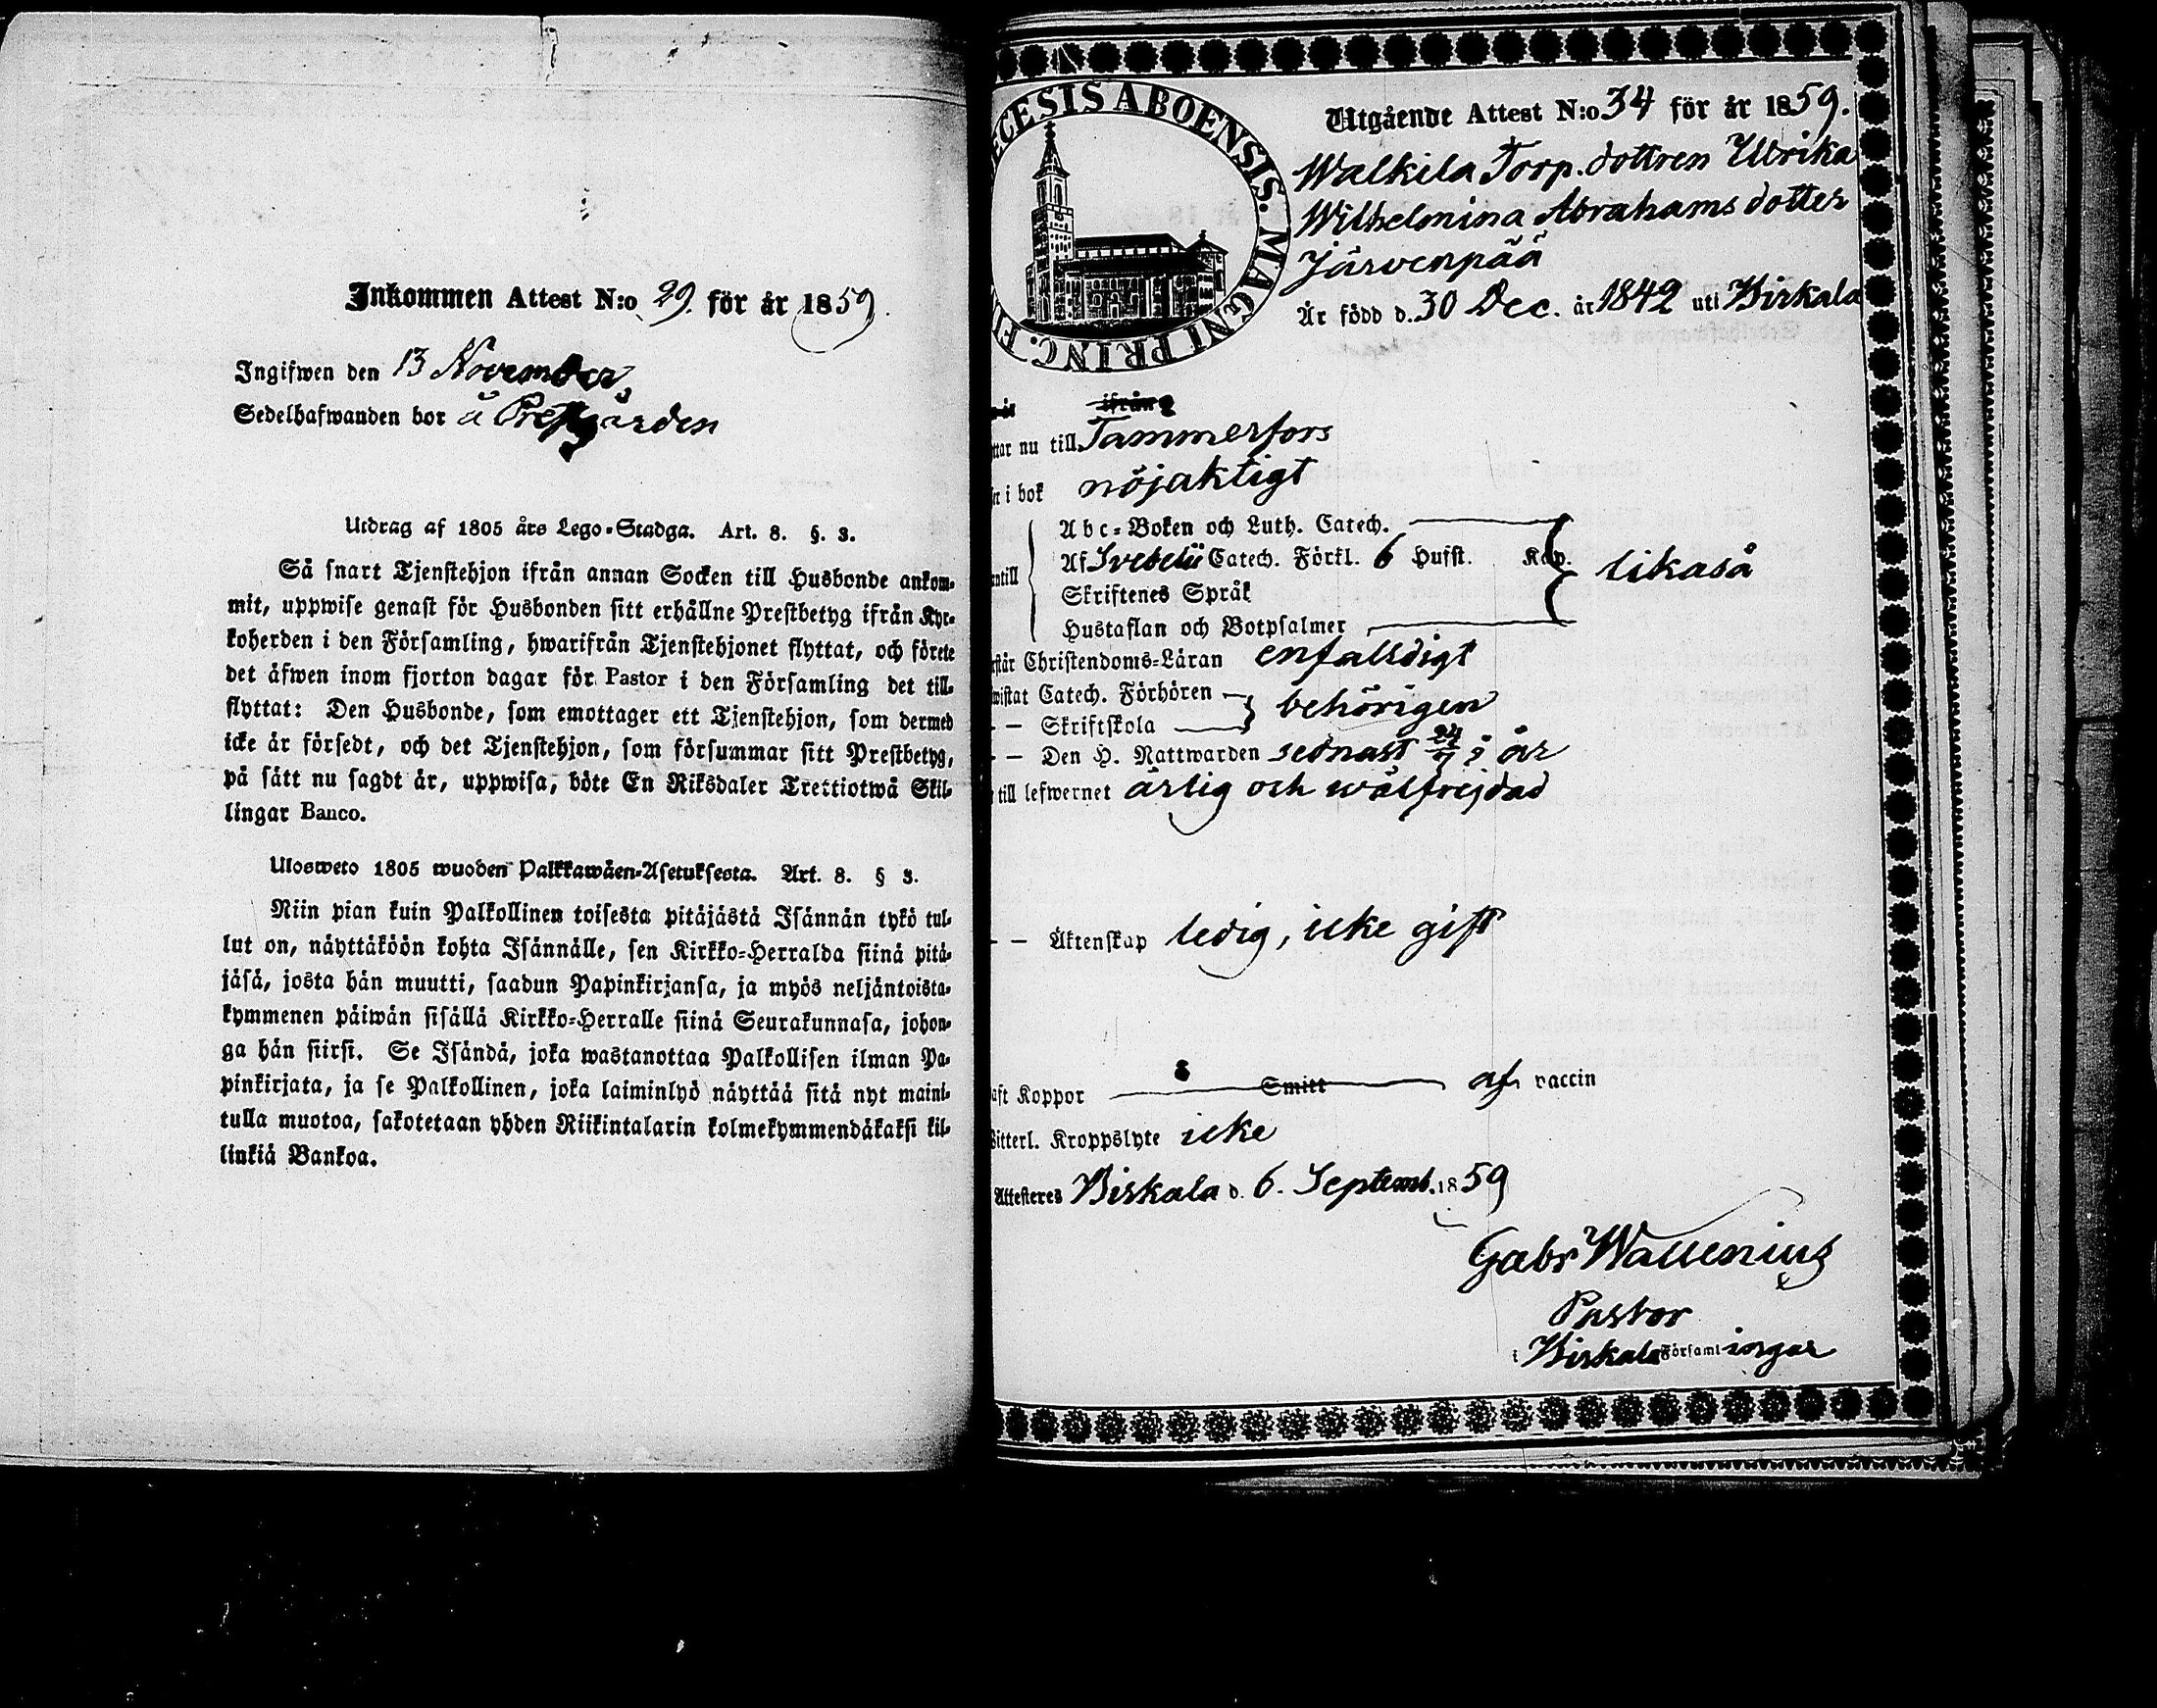 Inkommen Attest N:o 29. för år 1859.
Ingifwen den 13 November,
Sedelhafwanden bor å Prestgården
Utdrag af 1805 års Lego-Stadga. Art. 8. §. 3.
Så snart Tjenstehjon ifrån annan Socken till Husbonde ankom-
mit, uppwise genast för Husbonden sitt erhållne Prestbetyg ifrån Kyr-
koherden i den Församling, hwarifrån Tjenstehjonet flyttat, och förete
det äfwen inom fjorton dagar för Pastor i den Församling det till-
flyttat: Den Husbonde, som emottager ett Tjenstehjon, som dermed
icke är försedt, och det Tjenstehjon, som försummar sitt Prestbetyg,
på sätt nu sagdt är, uppwisa, böte En Riksdaler Trettiotwå Skil-
lingar Banco.
Ulosweto 1805 wuoden Palkkawäen-Asetuksesta. Art. 8. § 3.
Niin pian kuin Palkollinen toisesta pitäjästä Isännän tykö tul-
lut on, näyttäköön kohta Isännälle, sen Kirkko-Herralda siinä pitä-
jäsä, josta hän muutti, saadun Papinkirjansa, ja myös neljäntoista-
kymmenen päiwän sisällä Kirkko-Herralle siinä Seurakunnasa, johon-
ga hän siirsi. Se Isändä, joka wastanottaa Palkollisen ilman Pa-
pinkirjata, ja se Palkollinen, joka laiminlyö näyttää sitä nyt maini-
tulla muotoa, sakotetaan yhden Riikintalarin kolmekymmendäkaksi kil-
linkiä Bankoa.
ECESIS ABOENSIS. MAGNI PRINC. FI
Utgående Attest N:o 34 för år 1859.
Walkila Torp. dottren Ulrika
Wilhelmina Abrahamsdotter
Järvenpää
Är född d. 30 Dec. år 1842 uti Birkala
ifrån
ttar nu till Tammerfors
i bok nöjaktigt
Abc-Boken och Luth. Catech.
ntill Af Svebelii Catech. Förkl. 6 Hufst. Kap. likaså
Skriftenes Språk
Hustaflan och Botpsalmer
står Christendoms-Läran enfalldigt
wistat Catech. Förhören behörigen
— Skriftskola
— Den H. Nattwarden sednast 24/7 i år
till lefwernet ärlig och wälfrejdad
— — Äktenskap ledig, icke gift
aft Koppor Smitt af vaccin
Witterl. Kroppslyte icke
Attesteres Birkala d. 6. Septemb. 1859
Gabr Wallenius
Pastor
i Birkala Församlingar